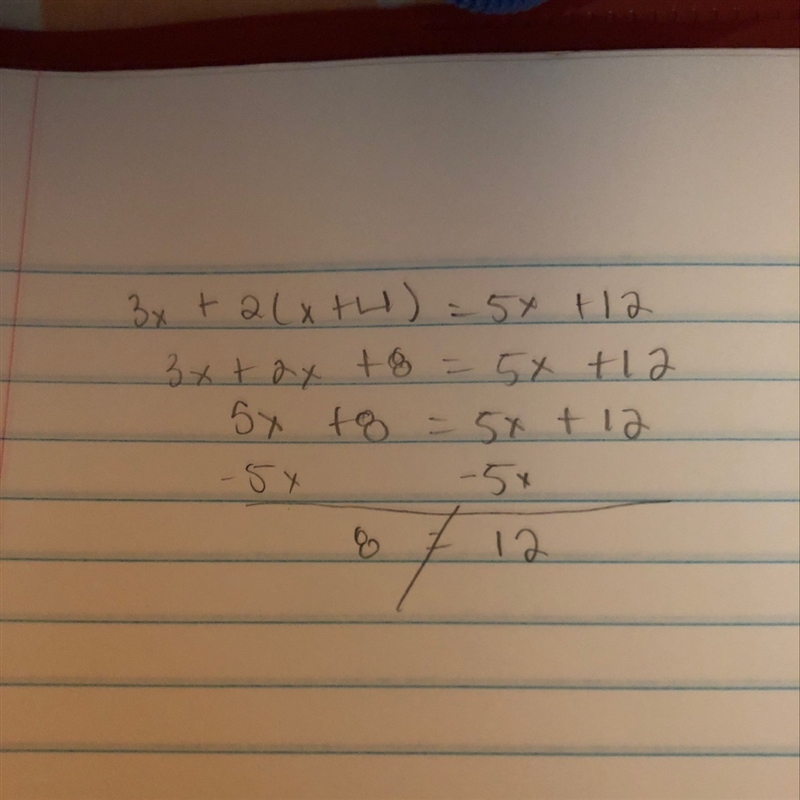 3x + 2(x+4) = 5x +12
3x + 2x +8 = 5x +12
5x +8 = 5x + 12
-5x -5x
8 ≠ 12